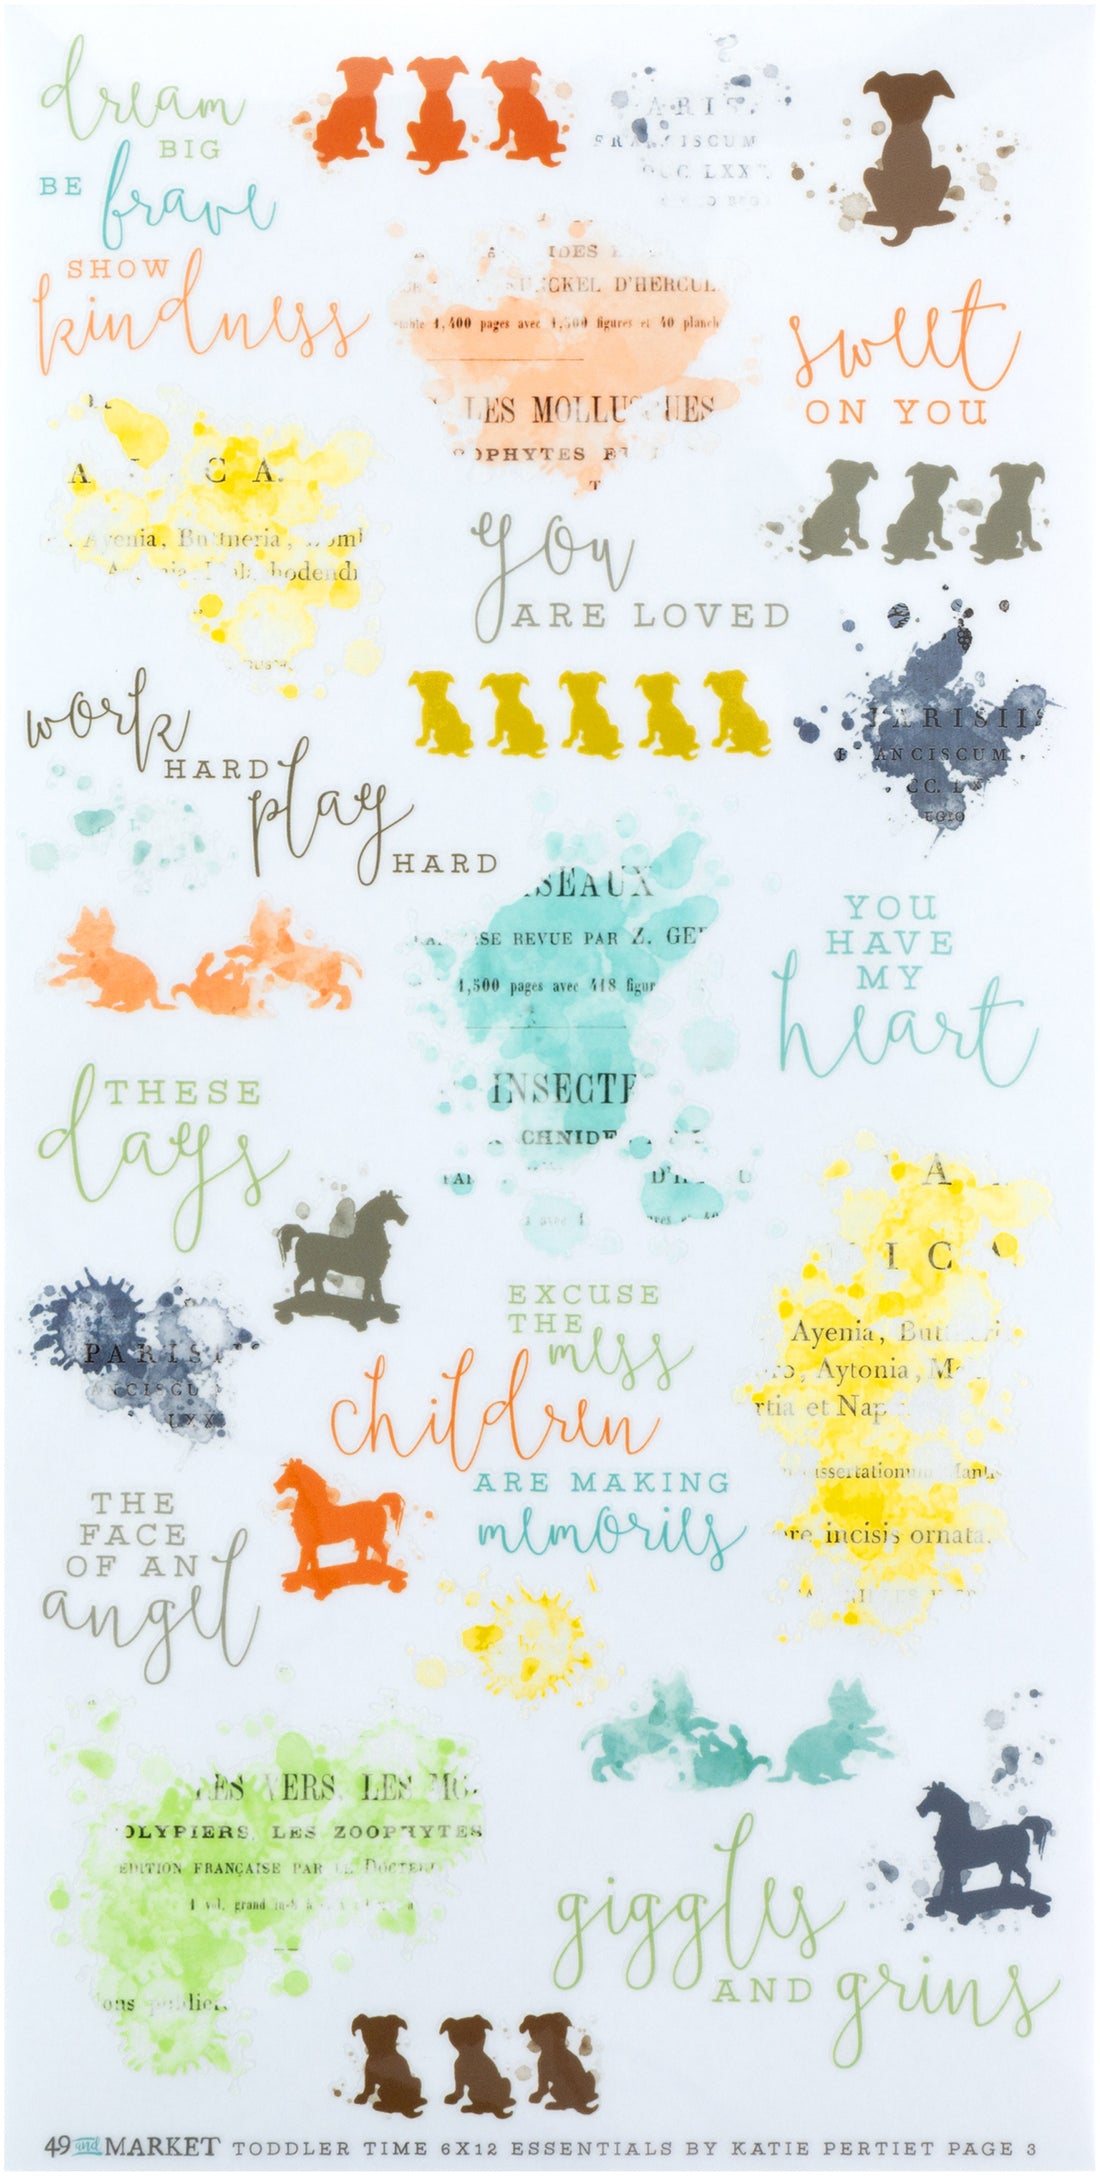 dream
BIG
BE brave
SHOW
kindness
FRANCISCUM
D'HERCUL
1,400 pages avec 1,500 figures et 40 planch
LES MOLLUSQUES
OPHYTES
sweet
ON YOU
A C A.
Ayenia, Buttneria,
hodendr
you
ARE LOVED
PARISIIS
FRANCISCUM
work
HARD play
HARD
SEAUX
SE REVUE PAR Z. GE
1,500 pages avec 418 figur
INSECTE
CHNIDE
YOU
HAVE
MY
heart
THESE
days
A
I C A
Ayenia, Buttneri
ro, Aytonia, M
rtia et Nap
issertationum Mantis
re incisis ornata.
PARISI
EXCUSE
THE
mess
children
ARE MAKING
memories
THE
FACE
OF AN
angel
ES VERS, LES MO
OLYPIERS, LES ZOOPHYTES
EDITION FRANÇAISE PAR LE DOCTEU
1 vol. grand in-8
ions publie
giggles
AND grins
49 and MARKET TODDLER TIME 6X12 ESSENTIALS BY KATIE PERTIET PAGE 3